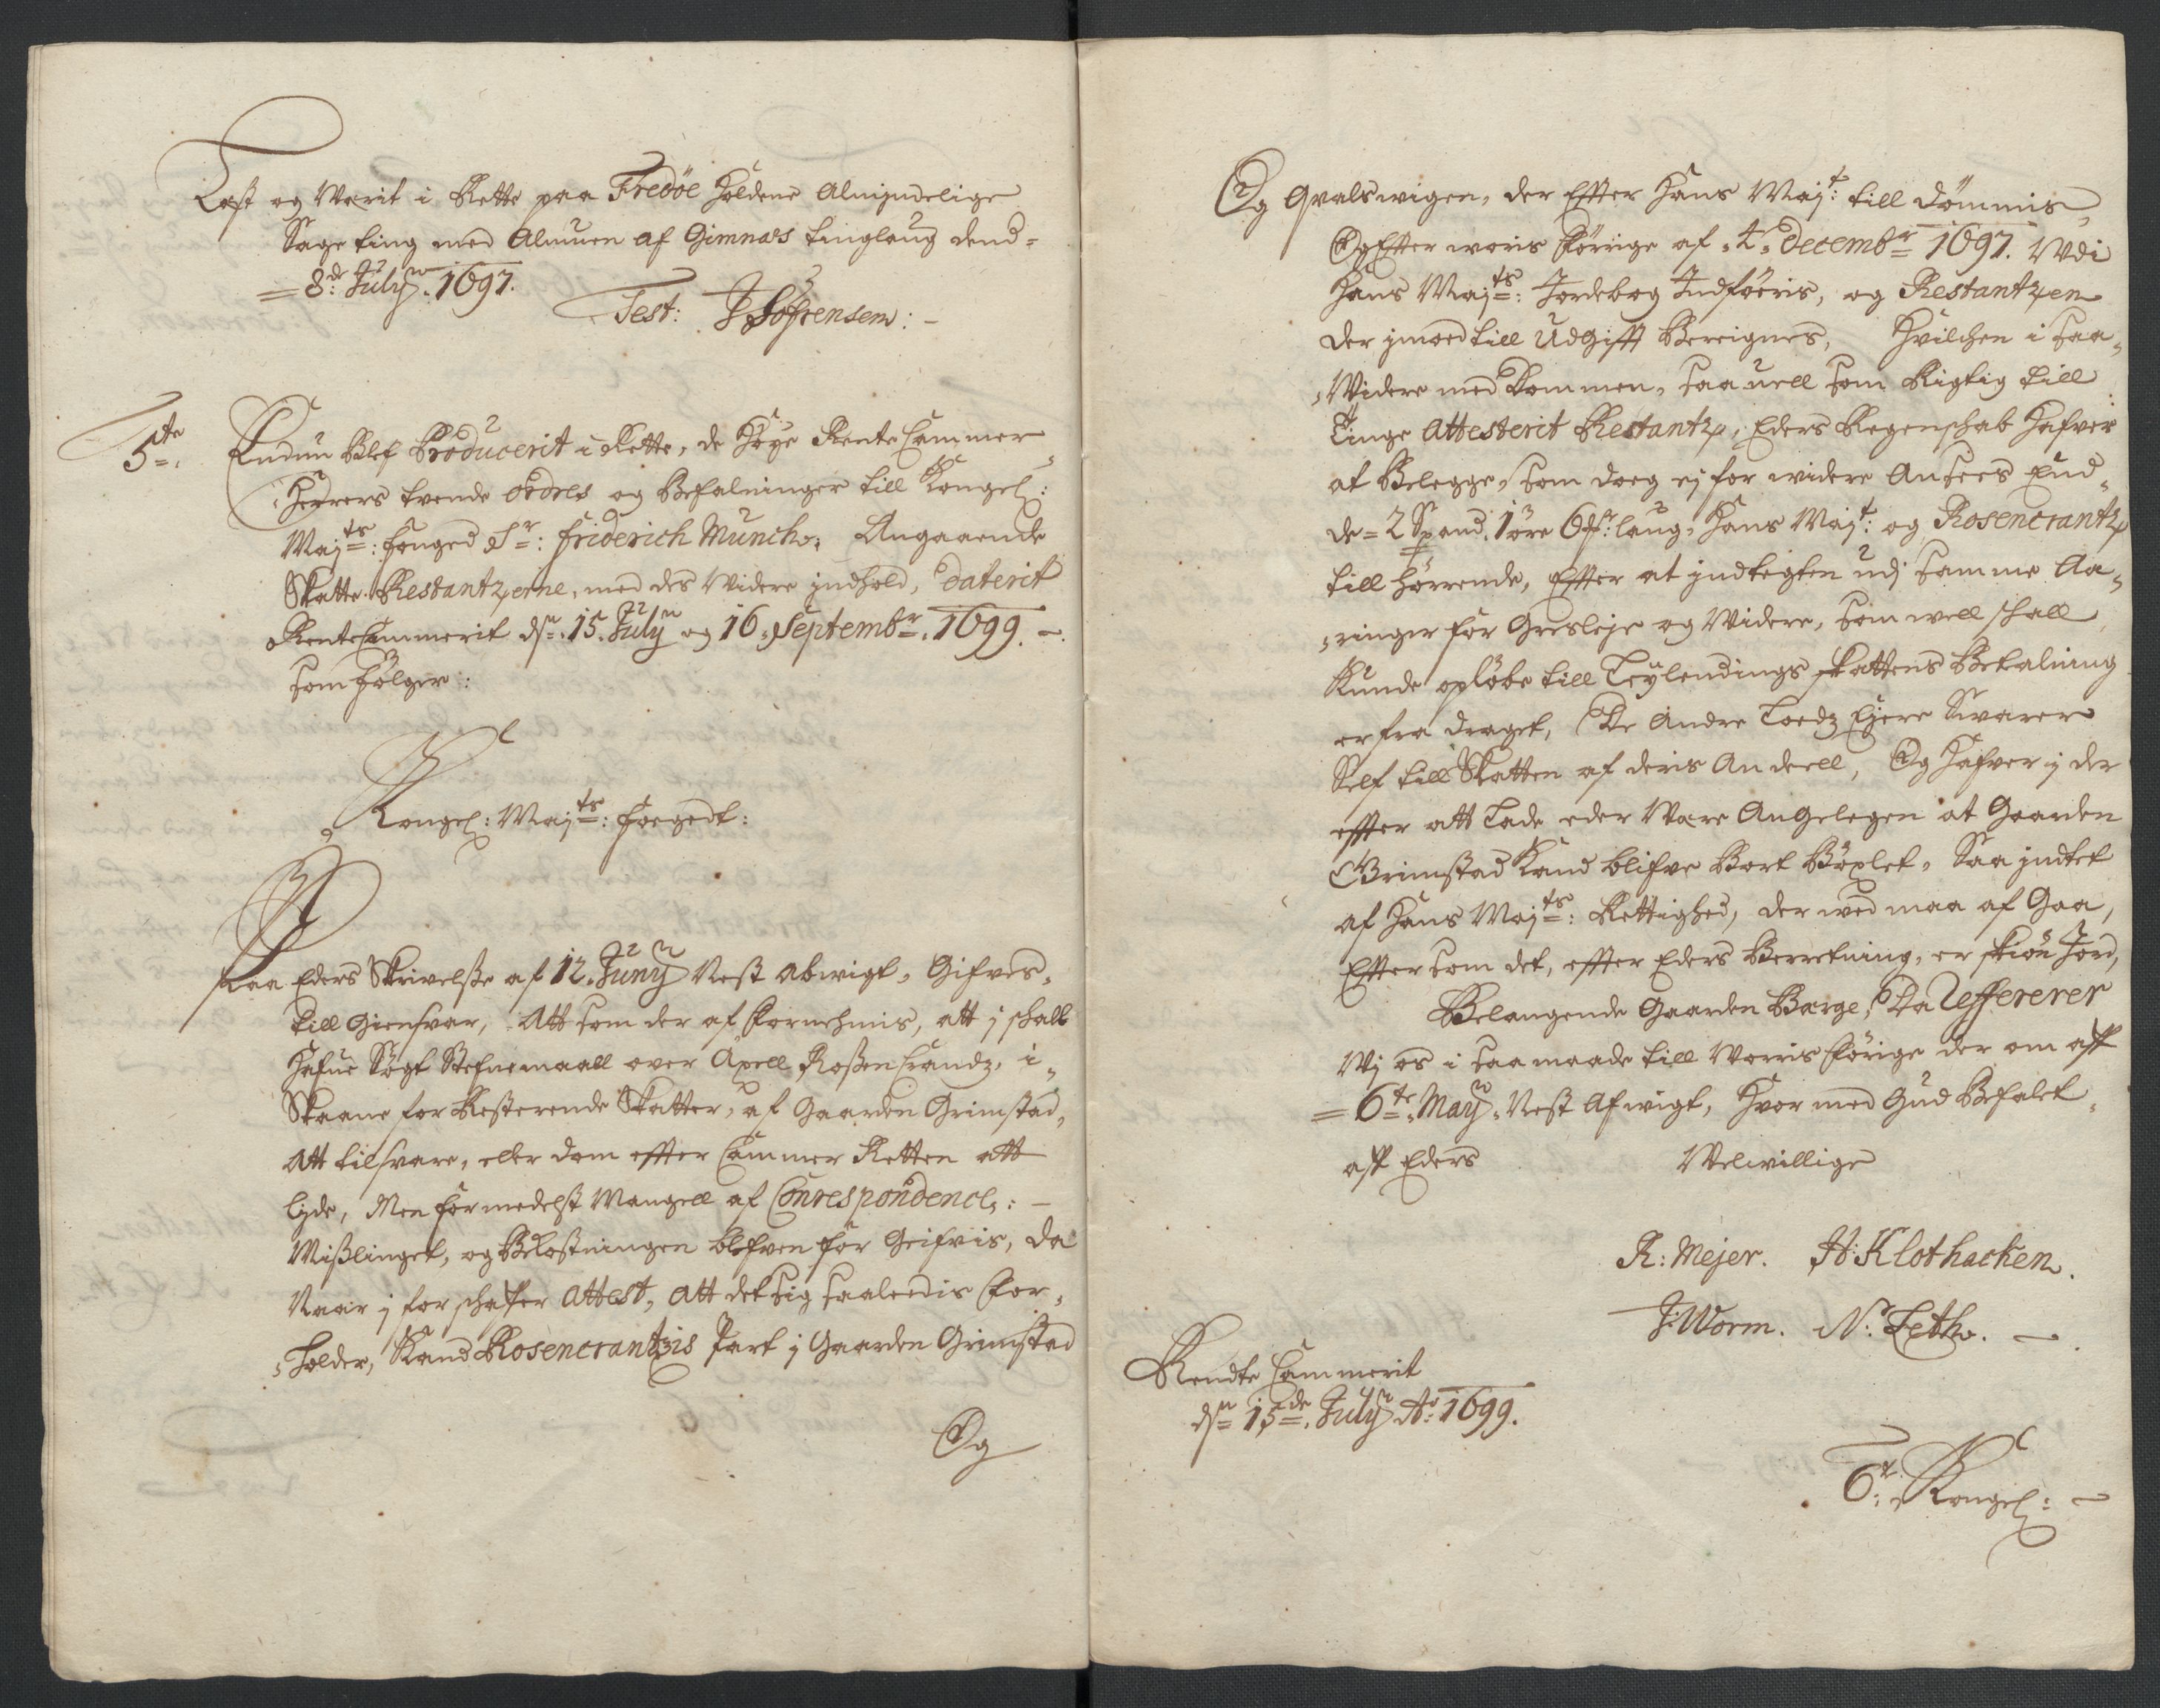 Læst og Werit i Rette paa Fredöe Holdene Almindelige
Sage ting med Almuen af Gimnæs tinglaug dend=
= 8de July 1697.
Test: J Sofrensen: -
5te Endnu Blef Producerit i Rette, de Höye Rente Cammer
Herrers tvende ordres og Befalninger till Kongel:
Majts: fouged Sr: Friderich Munch, Angaaende
Skatte Restantzerne, med des Widere jndhold, daterit
RenteCammerit dn 15 July og 16 Septembr. 1699. -
som fölger:
Kongel: Majts: foegedt:
Paa Eders Skrivelsse af 12 Juny Nest abwigt, Gifves
till Giensvar, Att som der af fornehmis, att j schall
Hafue Sögt Stefnemaall over Axell RosenCrandz, i
Skaane for Resterende Skatter, af Gaarden Grimstad,
Att tilsvare, eller dom effter Cammer Retten att
lyde, Men formedelst Mangell af Conrespondence: -
Misslinget, og Bekostningen blefven for Geifvis, da
Naar j forschaffer Attest, att det sig saaledis for-
holder, Kand Rosencrantzis Part j Gaarden Grimstad
Og
Og Qvalswigen, der Effter Hans Majt: till dömmis,
Og Effter woris forrige af 4 decembr 1697. Udi
Hans Majts: Jordebog Indföeris, og Restantzen
der jmod till Udgifft Bereignes, Hvilchen i saa
Widere med dommen, saa uell som Rigtig till
Tinge Attesterit Restantz, Eders Regenschab Hafver
at Belegge, som doeg ej for widere Ansees End
de = 2 Spand 1 öre 6 fr: laug, Hans Majt: og Rosencrantz
till hörrende, Effter at jndtegten udj samme Aa-
ringer for Gresleje og Widere, som well schall
Kunde oplöbe till Leylendings skattens Betalning
er fra draget, De Andre Loedz Ejere Svarer
Self till Skatten af deris Andeell, Og Hafver j der
effter att Lade eder Være Angelegen at Gaarden
Grimstad Kand blifve Bort Böxlet, Saa jndtet
af Hans Majts: Rettighed, der wed maa af Gaa,
Efftersom det, effter Eders Berretning, er skiön Jord,
Belangende Gaarden Berge, Da Refererer
Wj os i saa maade till Worris förige der om aff
= 6te May Nest Afwigt, Hvor med Gud Befalet
aff Eders Welwillige
R: Mejer. H: Klothacken.
J: Worm. N: Leth. -
Rendte Cammerit
dn 15de July Ao 1699.
6te Kongel: -